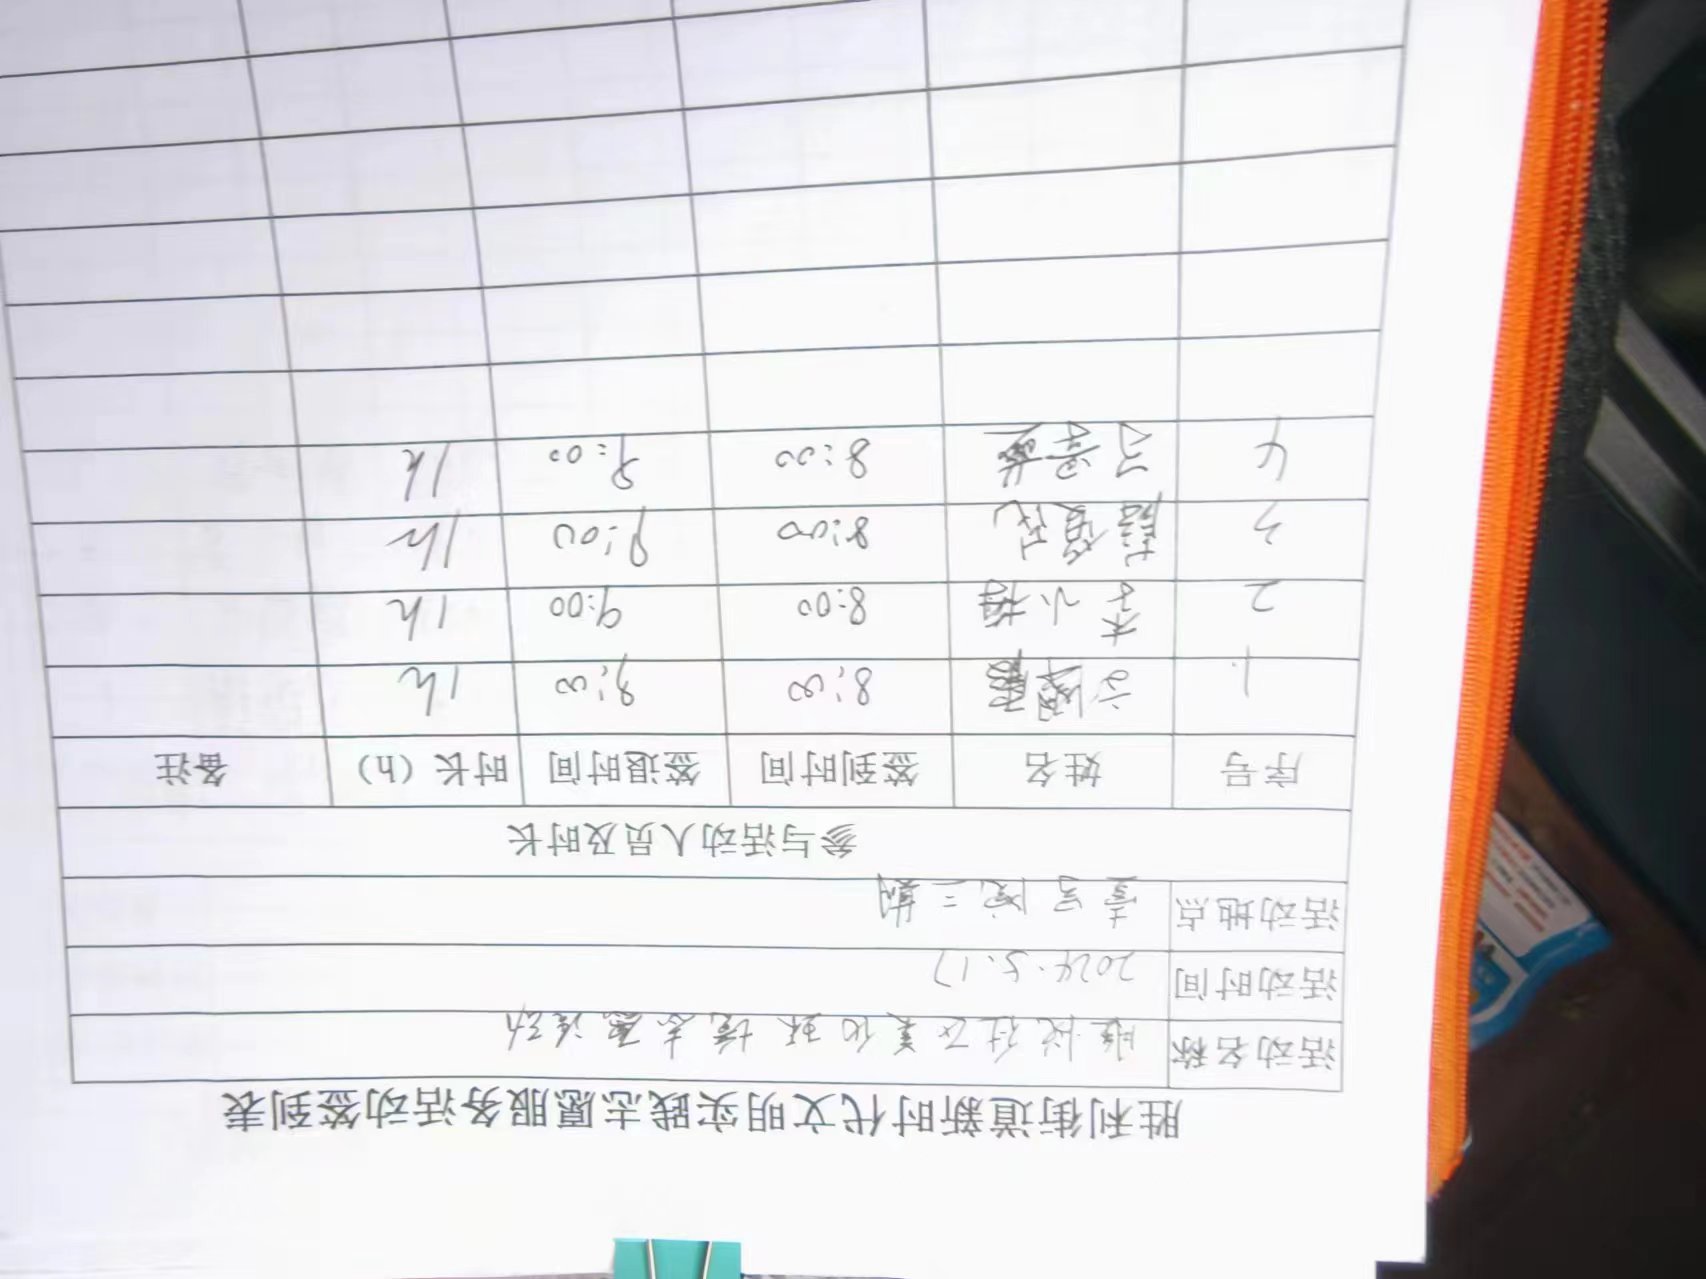 胜利街道新时代文明实践志愿服务活动签到表
活动名称 胜悦社区美化环境志愿活动
活动时间 2024.5.17
活动地点 壹号院二期
参与活动人员及时长
序号 姓名 签到时间 签退时间 时长（h） 备注
1. 8:00 9:00 1h
2 李小梅 8:00 9:00 1h
3 8:00 9:00 1h
4 8:00 9:00 1h